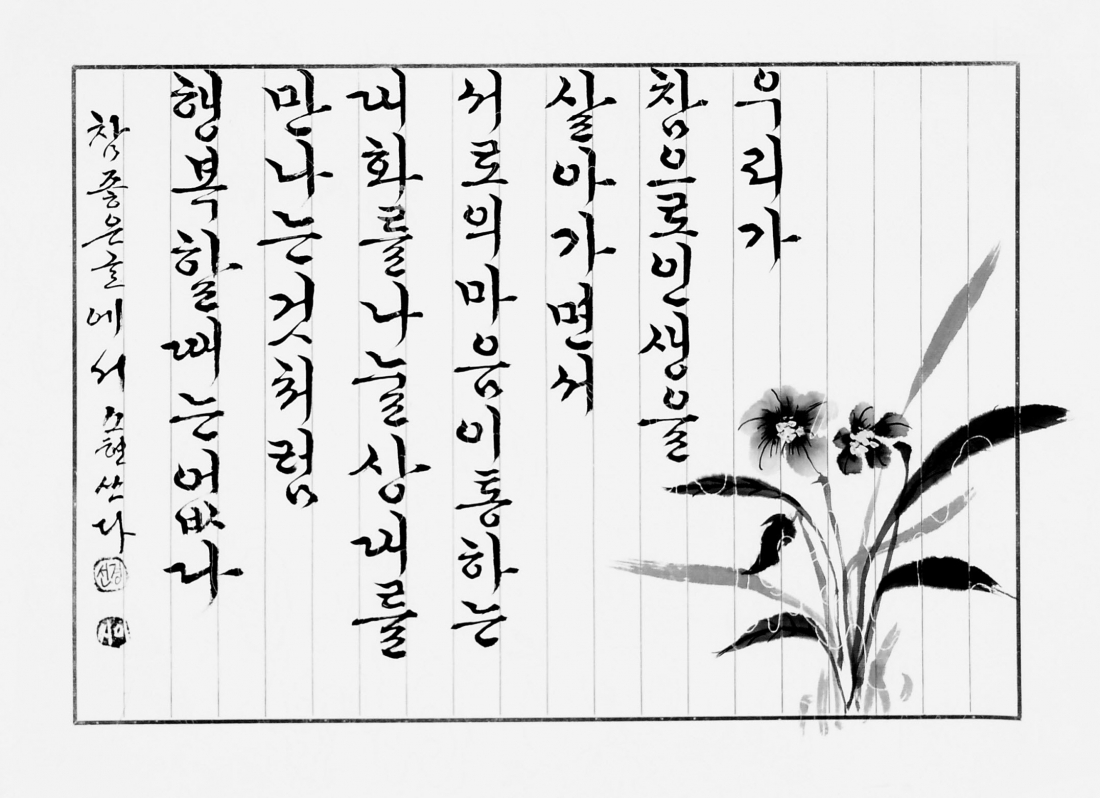 우리가
참으로인생을
살아가면서
서로의마음이통하는
대화를나눌상대를
만나는것처럼
행복할때는없다
참좋은글에서 소현쓰다